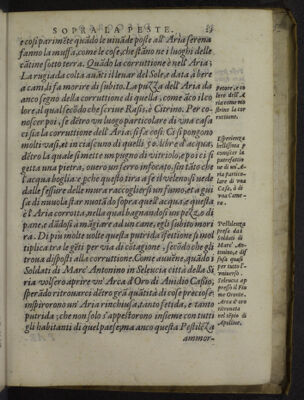 SOPRA LA PESTE.
e così parimẽte quãdo le viuãde poste all'Aria serena
fanno la muffa, come le cose, che stãno ne i luoghi delle
cãtine sotto terra. Quãdo la corruttione è nell'Aria;
La rugiada colta auãti il leuar del Sole, e data à bere
a cani, gli fa morire di subito. La puzza dell'Aria dà
anco segno della corruttione di quella, come àco il co
lore, al qual secõdo che scriue Rasis, è Citrino. Per co-
noscer poi, se dẽtro vn luogo particolare di vna casa
ci sia la corruttione dell'Aria, si fa così. Ci si pongono
molti vasi, et in ciascuno di quelli, vna libre d'acqua,
dẽtro la quale si mette un pugno di vitriolo, e poi ci si
getta una pietra, ouero un ferro infocato, sin tãto che
l'acqua boglia: perche questo tira a se il veleno: se uede
dalle fessure delle mura raccogliersi un fumo, et a gui
sa di nuuola star nuotãdo sopra quell'acqua; questa
è l'Aria corrotta, nella qual bagnandosi un pezzo di
pane, e dãdosi à mãgiare ad un cane, egli subito more
ra. Di più molte volte questa putrida isfettione si mol
tiplica tra le gẽti per via di cõtagione, secõdo che gli
troua disposti alla corruttione. Come auuẽne, quãdo i
Soldati di Marc'Antonino in Seleucia città della So
ria volsero aprire un'Arca d'Oro di Auidio Cassio;
sperãdo ritrouarci dẽtro grã quãtità di cose preciose;
inspirorono un'Aria rinchiusa, tanto fetida, e tanto
putrida, che non solo s'appestorono insieme con tutti
gli habitanti di quel paese; ma anco questa Pestilẽza
ammor-
Fetore, e co
lore dell'A
ria come mo
strino la cor
ruttione.
Esperienza
bellissima p
conoscer la
putrefattio
ne dell'A-
ria partico-
lare di vna
Casa, ò di
vna Came-
ra.
Pestilenza
presa da i
Soldati di
Marc'An-
tonino, e dif
fusa quasi
per tutto l'-
vniuerso.
Seleucia ap
presso il Fiu
me Oronte.
Arca d'oro
ritrouata
nel tẽpio di
Apolline.